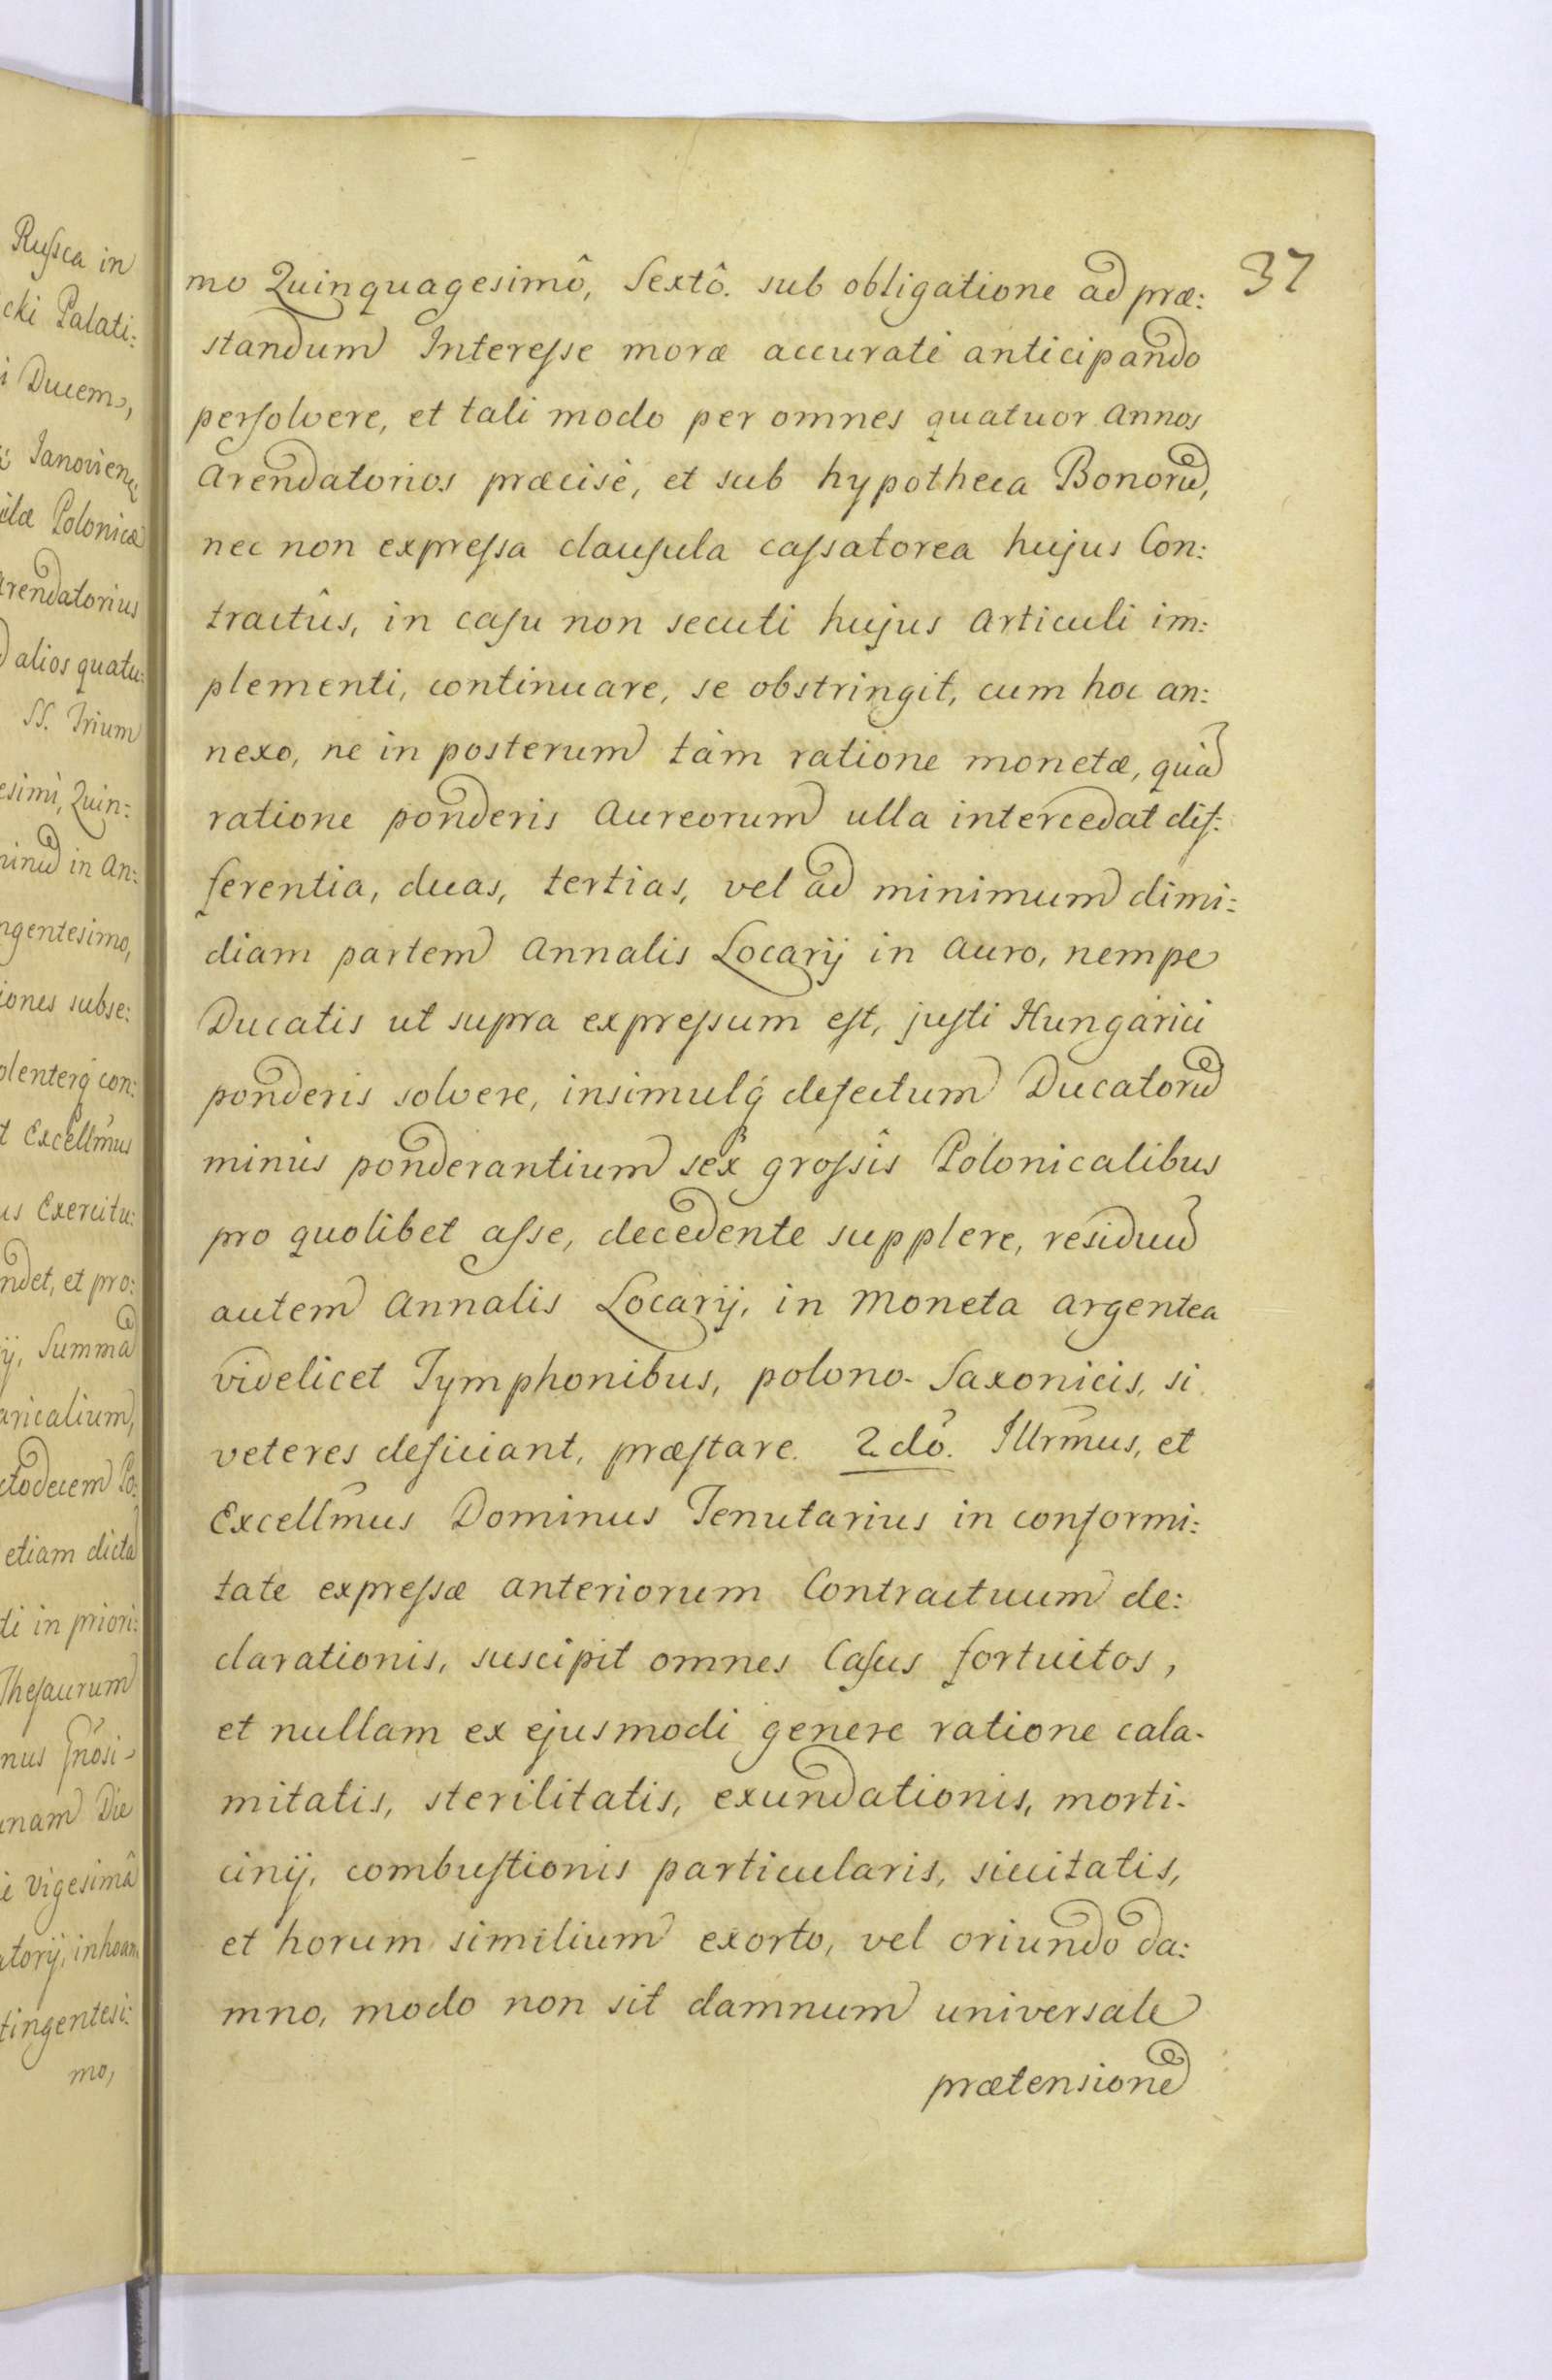 37
mo Quinquagesimô, Sextô. sub obligatione ad præ:
standum Interesse moræ accuratè anticipando
persolvere, et tali modo per omnes quatuor annos
arendatorios præcisè, et sub hypotheca Bonorũ,
nec non expressa clausula cassatorea hujus Con:
tractûs, in casu non secuti hujus articuli im:
plementi, continuare, se obstringit, cum hoc an:
nexo, ne in posterum tàm ratione monetæ, quà̃
ratione ponderis aureorum ulla intercedat dif:
ferentia, duas, tertias, vel ad minimum dimi:
diam partem annalis Locarij in auro, nempe
Ducatis ut supra expressum est, justi Hungarici
ponderis solvere, insimulq́ defectum Ducatorũ
minùs ponderantium sex grossis Polonicalibus
pro quolibet asse, decedente supplere, residuũ
autem annalis Locarij, in moneta argentea
videlicet Tymphonibus, polono-Saxonicis, si
veteres deficiant, præstare. 2dò. Illr̃mus, et
Excellm̃us Dominus Tenutarius in conformi:
tate expressæ anteriorum Contractuum de:
clarationis, suscipit omnes Casus fortuitos,
et nullam ex ejusmodi genere ratione cala-
mitatis, sterilitatis, exundationis, morti-
cinij, combustionis particularis, siccitatis,
et horum similium exorto, vel oriundo da:
mno, modo non sit damnum universale
prætensionẽ
Russca in
cki Palati:
i Ducem,
ilæ Polonicæ
arendatorius
alios quatu:
SS. Trium
esimi, Quin:
in an:
ngentesimo,
iones subse:
olenterq́ con:
t Excellm̃us
us Exercitu:
ndet, et pro:
ij, Summã
aricalium,
ctodecem Po:
etiam dictã
ti in priori:
Thesaurum
nam Die
i vigesimâ
atorij, inhoan
tingentesi:
mo,